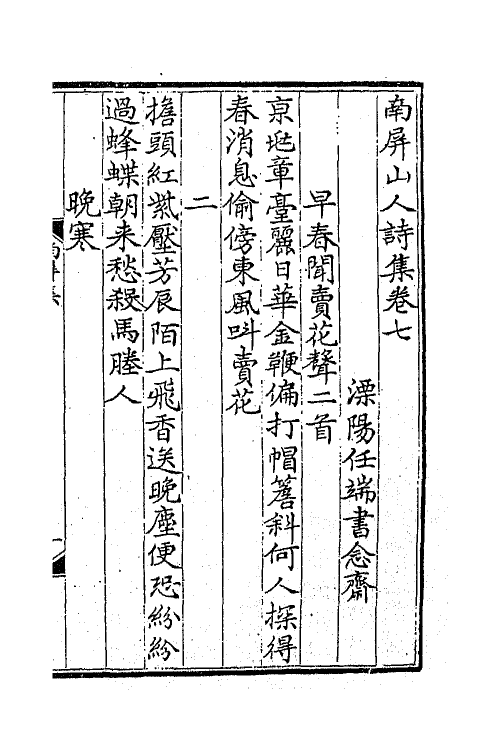 南屏山人詩集卷七
溧陽任端書念齋
早春聞賣花聲二首
京地章臺麗日華金鞭偏打帽簷斜何人探得
春消息偷傍東風叫賣花
二
擔頭紅紫壓芳辰陌上飛香送晚塵便恐紛紛
過蜂蝶朝来愁殺馬塍人
晚寒